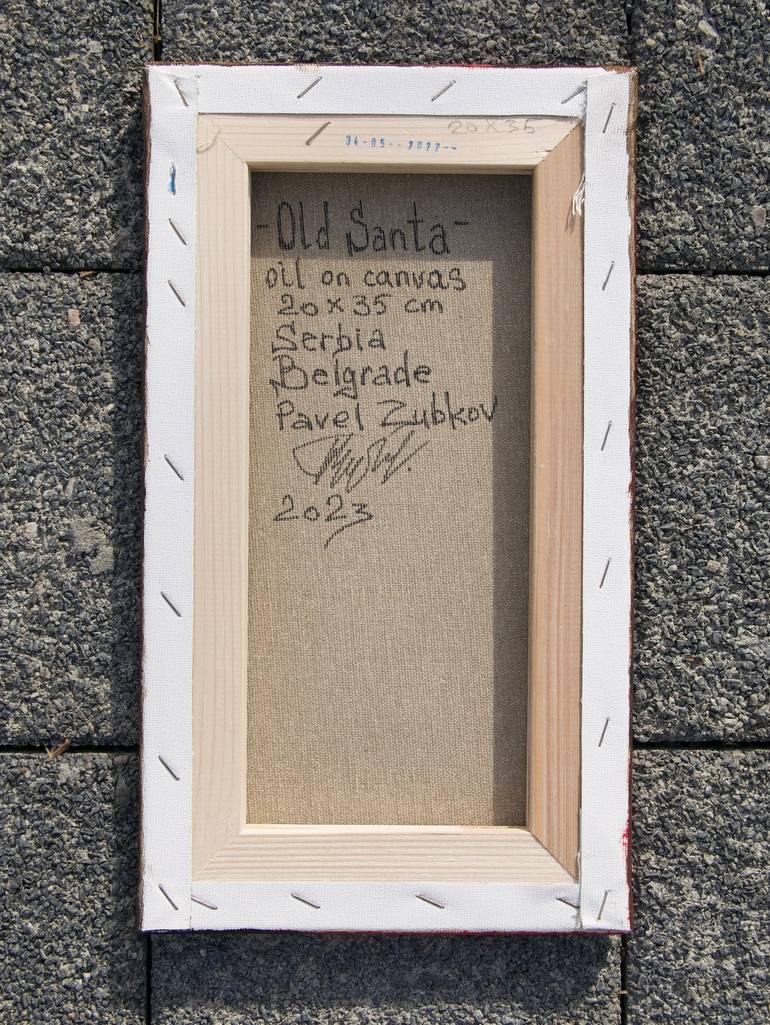 20 x 35
34-05--2022--
-Old Santa-
oil on canvas
20 x 35 cm
Serbia
Belgrade
Pavel Zubkov
2023